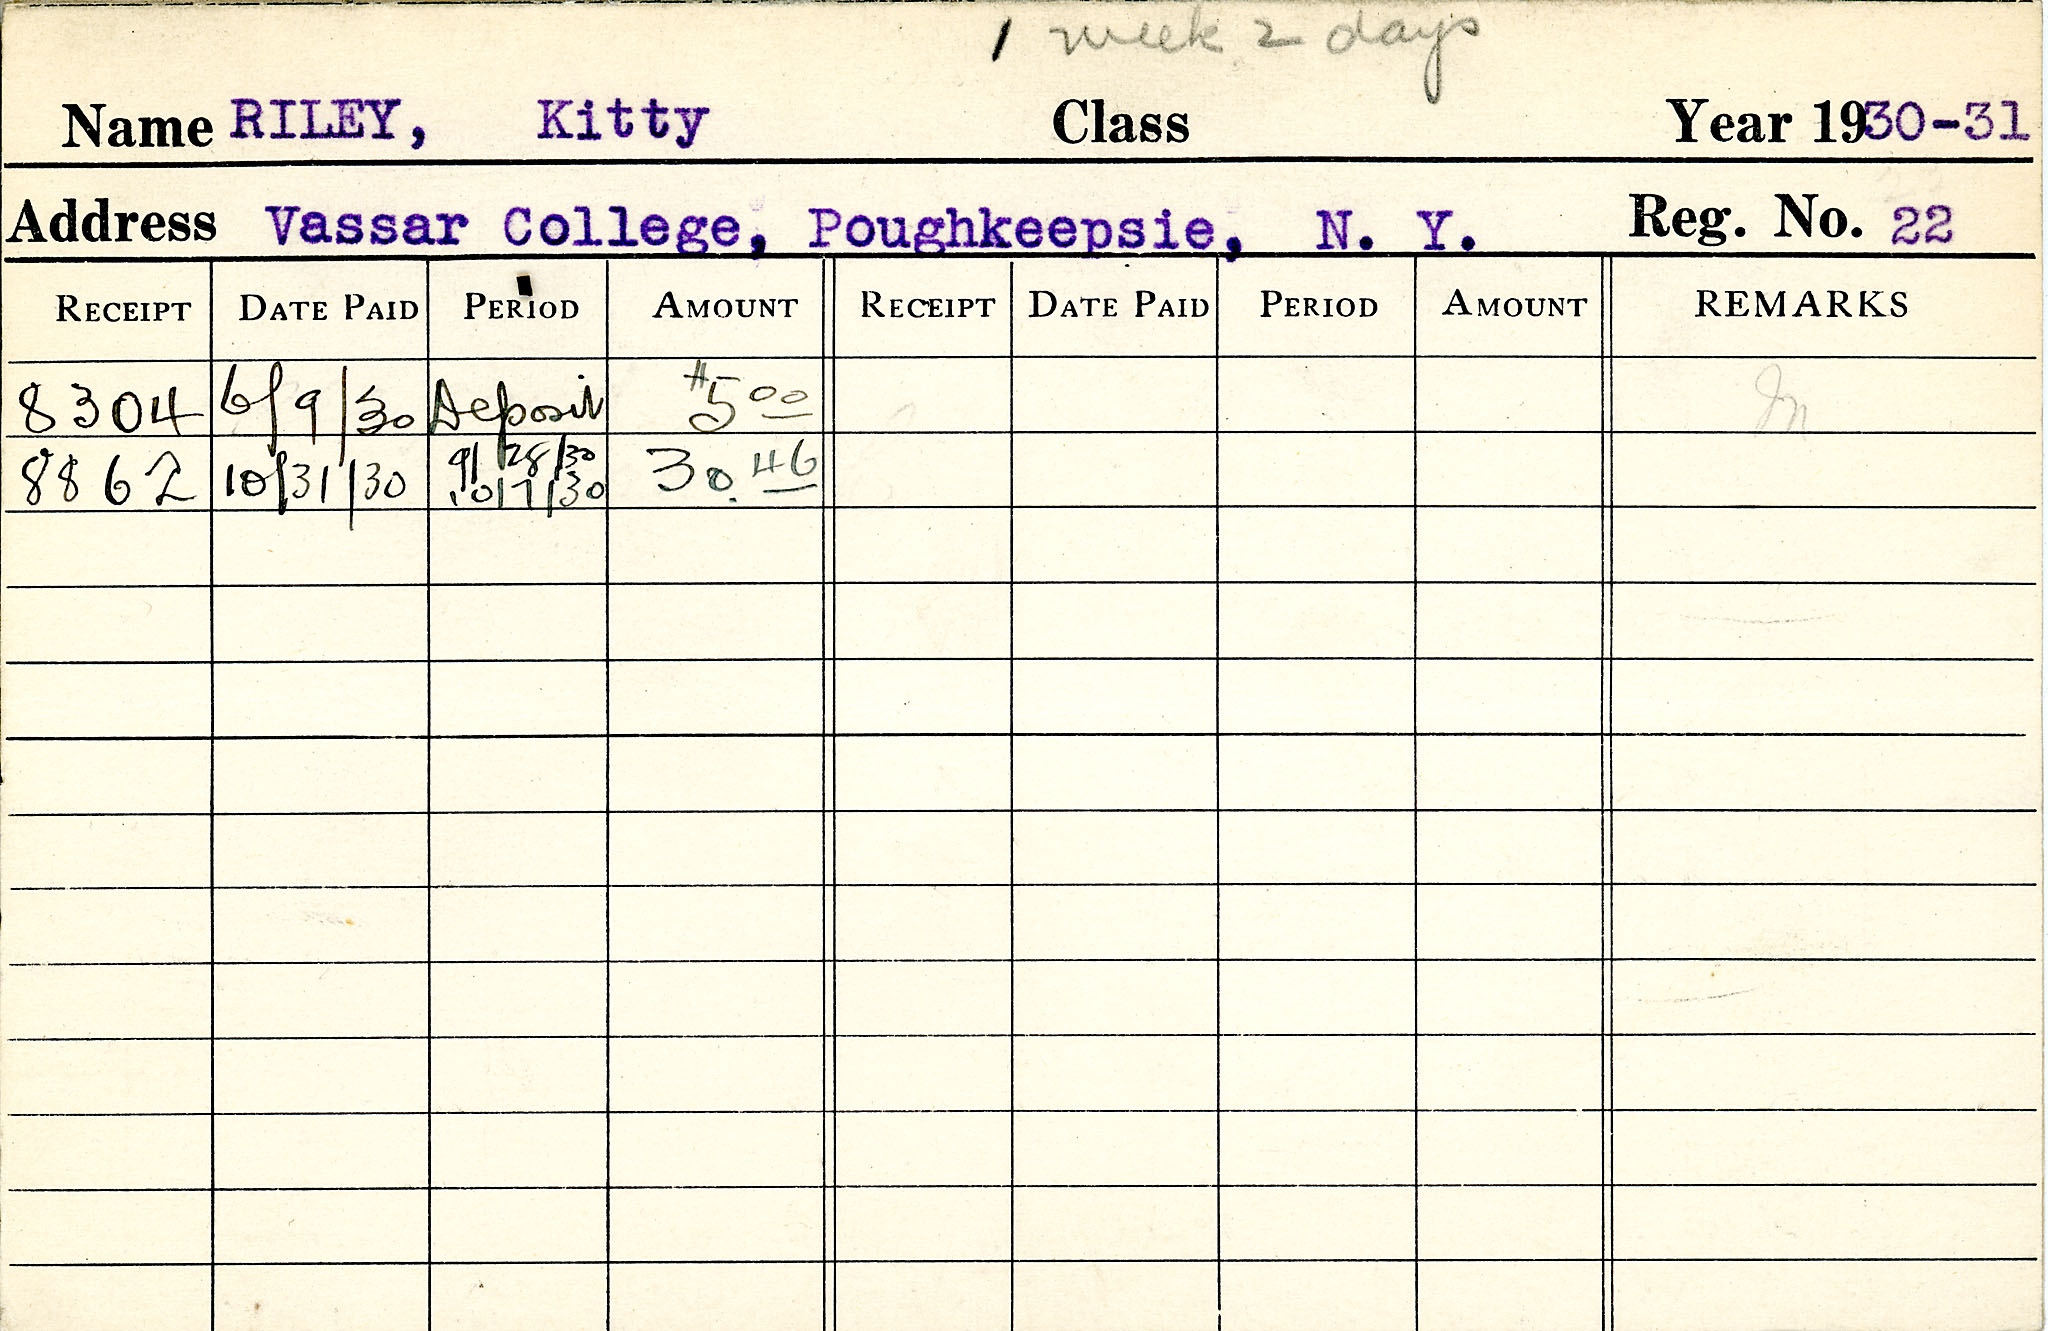 1 week 2 days
Name RILEY, Kitty Class Year 1930-31
Address Vassar College, Poughkeepsie, N. Y. Reg. No. 22
RECEIPT DATE PAID PERIOD AMOUNT RECEIPT DATE PAID PERIOD AMOUNT REMARKS
8304 6/9/30 Deposit $5 00
8862 10/31/30 9/28/30 30.46
10/7/30